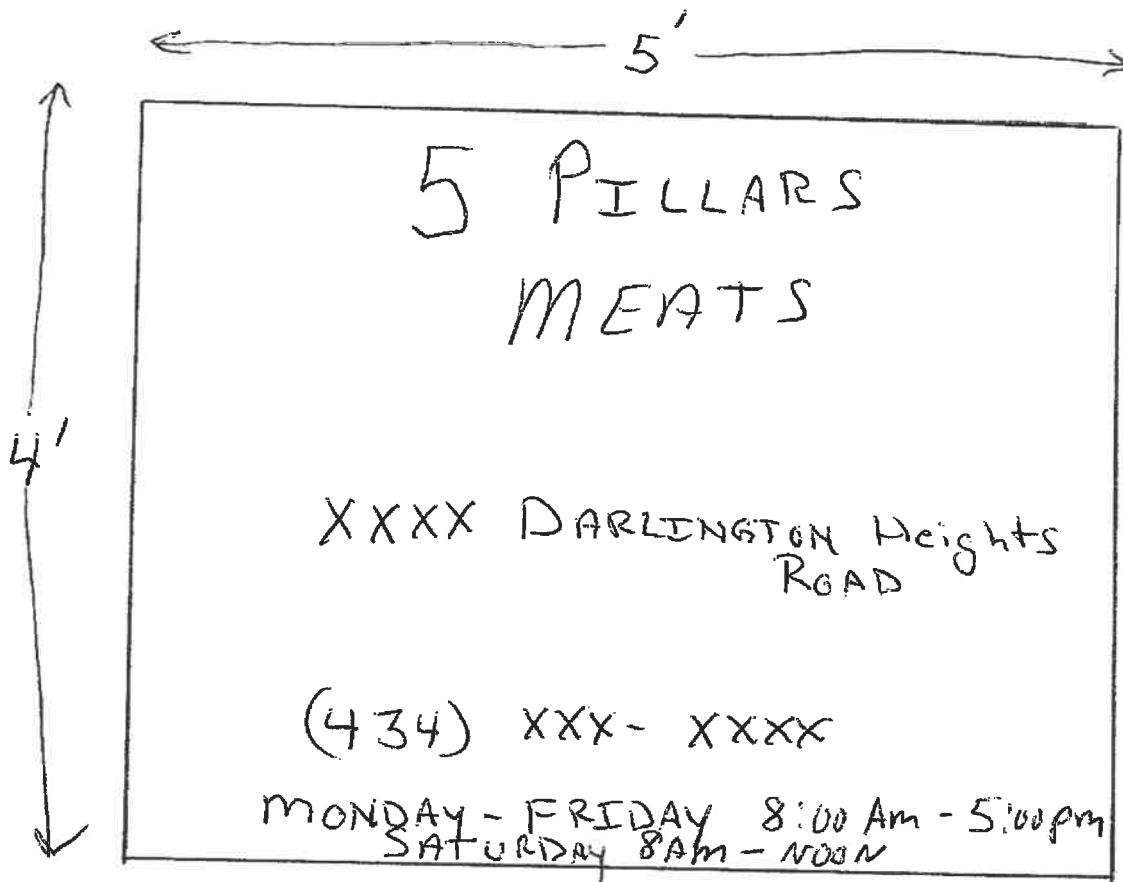 5'
4'
5 PILLARS
MEATS
XXXX DARLINGTON Heights
ROAD
(434) XXX- XXXX
MONDAY - FRIDAY 8:00 Am - 5:00pm
SATURDAY 8Am - NOON